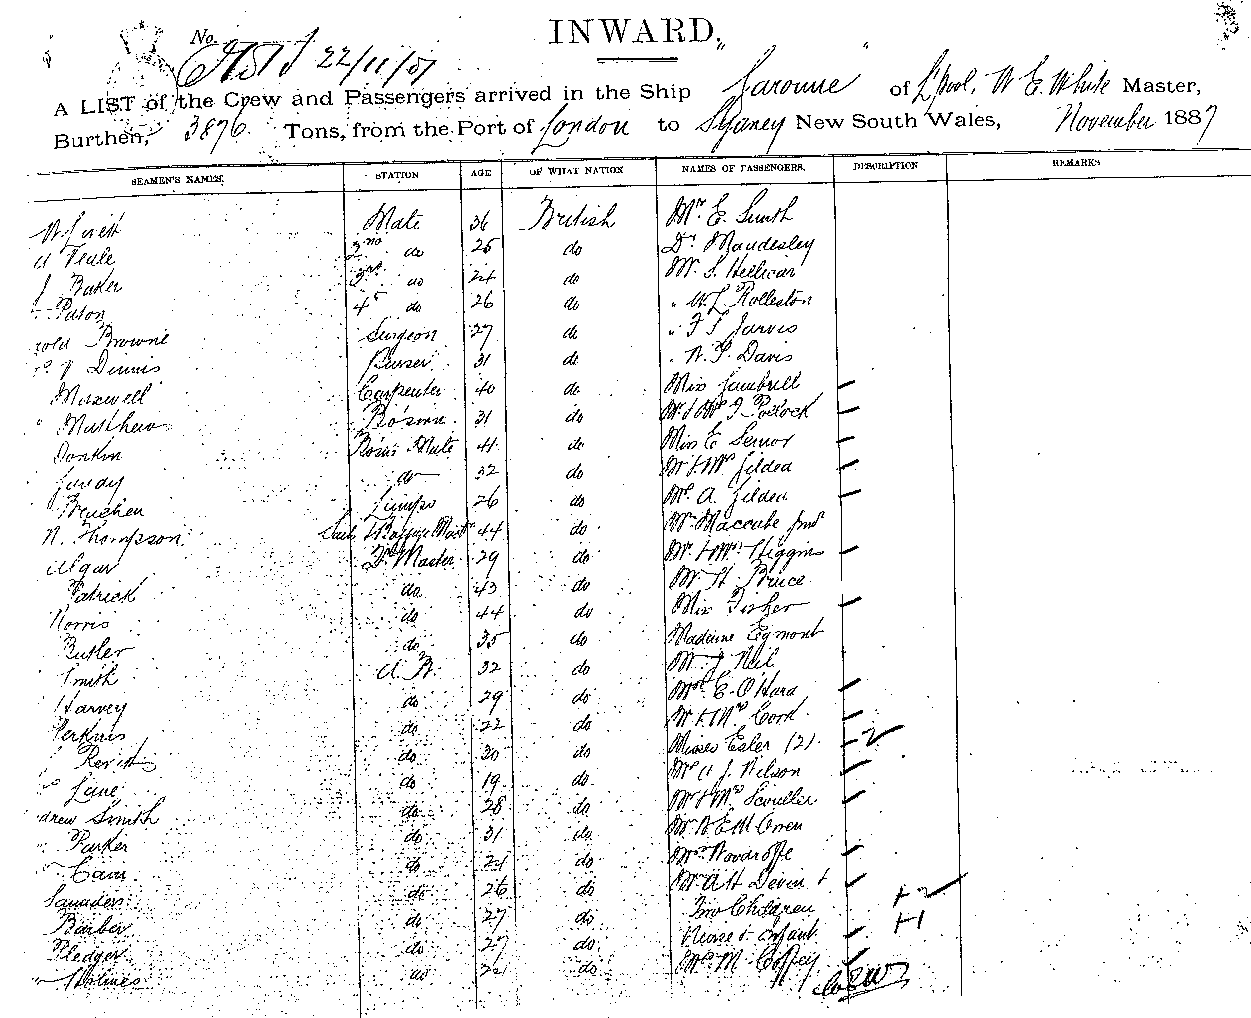 INWARD.
No.
22/11/87
A LIST of the Crew and Passengers arrived in the Ship "Garonne" of L'pool, W E White Master,
Burthen, 3876 Tons, from the Port of London to Sydney New South Wales, November 1887
SEAMEN'S NAMES. STATION AGE OF WHAT NATION NAMES OF PASSENGERS. DESCRIPTION REMARKS
Mate 36 British Mr E. Smith
Veale 2nd do 25 do Dr Maudesley
Baker 3rd do 24 do Mr. S. Hellicar
Paton 4th do 26 do " Rolleston
Browne Surgeon 27 do " F S Jarvis
Dennis Purser 31 do " W. P. Davis
Maxwell Carpenter 40 do Miss Gambrell
" Matthews Bosun 31 do Mr & Mrs J Pollock
Donkin Bosns Mate 41 do Miss E Senior
Gundy do 32 do Mr & Mrs Gildea
Lamps 26 do A. Gildea
N. Thompson 44 do Mr Maccabe Junr
Algar Qr Master 29 do Mr & Mrs Higgins
Patrick do 43 do Mr H. Bruce
Norris do 44 do Miss Fisher
Butler do 35 do Madame Egmont
Smith A.B. 32 do Mr J Neil
Harvey do 29 do E. O'Hara
Perkins do 22 do Mr & Mrs Cook
do 30 do Misses Esler (2) - 2
Lane do 19 do A J. Nelson
drew Smith do 28 do Mr & Mrs Scouller
" Parker do 31 do Mr Owen
Cain do 24 do Mrs Woodroffe
Saunders do 26 do Mr A H Devin & + 2
Barber do 27 do Two Children + 1
Pledger do 27 do Nurse & Infant
" Holmes do 22 do M. Coffey